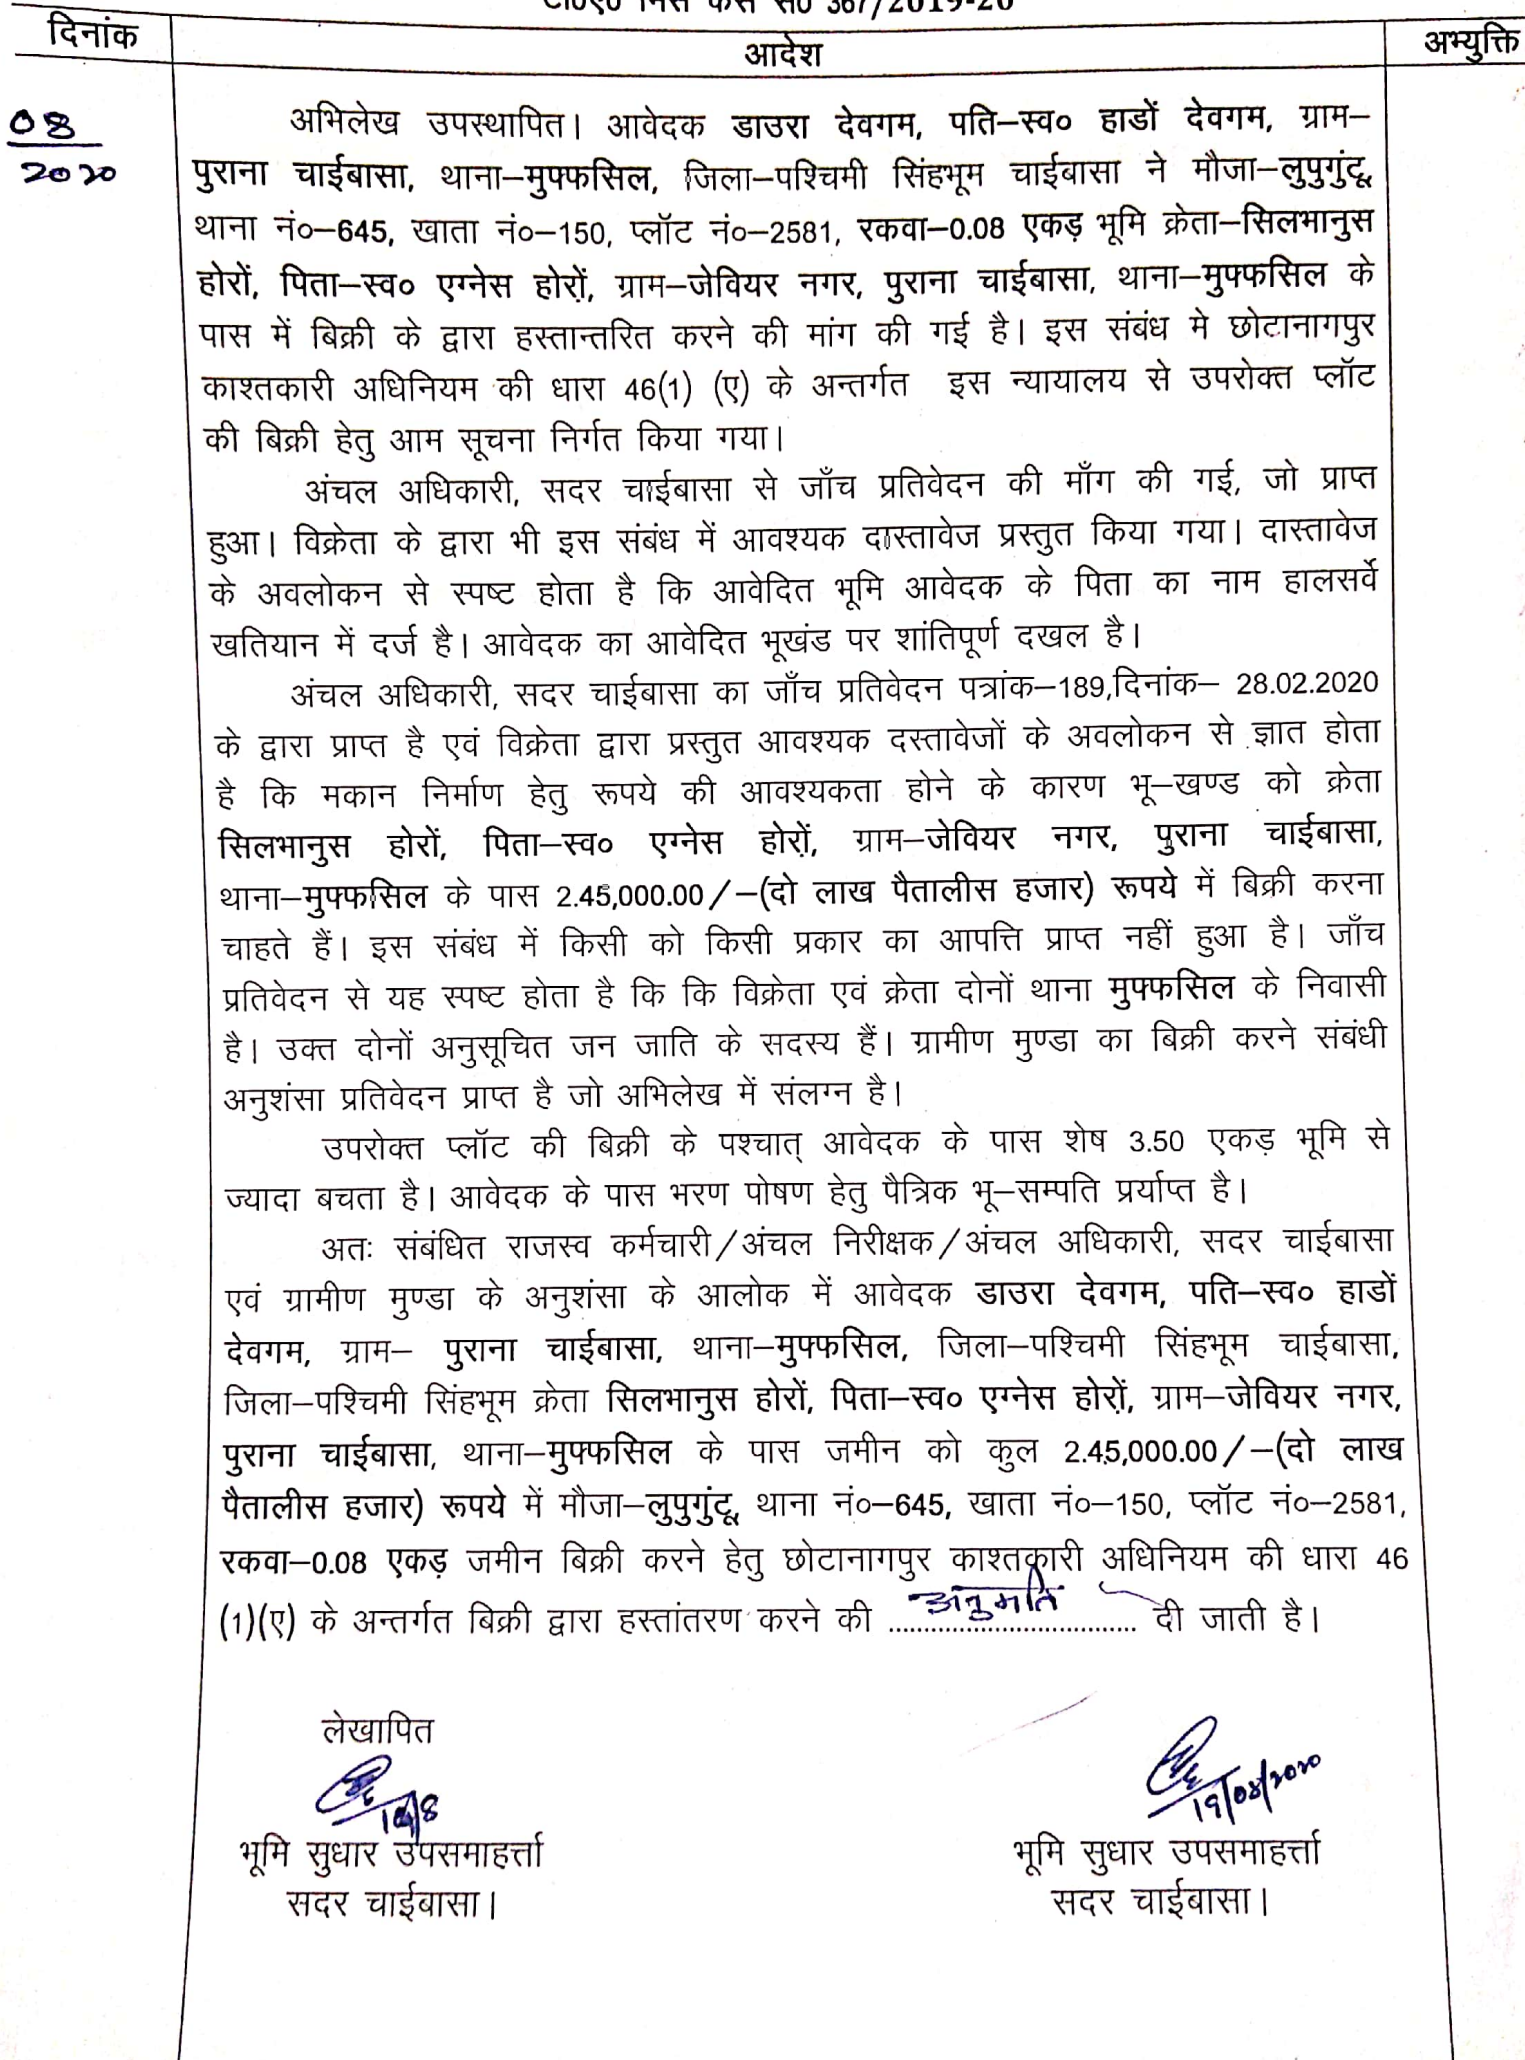 टी०ए० मिस केस सं० 367/2019-20
दिनांक
आदेश
अभ्युक्ति
08
2020
अभिलेख उपस्थापित। आवेदक डाउरा देवगम, पति–स्व० हाडों देवगम, ग्राम–
पुराना चाईबासा, थाना–मुफ्फसिल, जिला–पश्चिमी सिंहभूम चाईबासा ने मौजा–लुपुगुंटू,
थाना नं०–645, खाता नं०–150, प्लॉट नं०–2581, रकवा–0.08 एकड़ भूमि क्रेता–सिलभानुस
होरों, पिता–स्व० एग्नेस होरों, ग्राम–जेवियर नगर, पुराना चाईबासा, थाना–मुफ्फसिल के
पास में बिक्री के द्वारा हस्तान्तरित करने की मांग की गई है। इस संबंध मे छोटानागपुर
काश्तकारी अधिनियम की धारा 46(1) (ए) के अन्तर्गत इस न्यायालय से उपरोक्त प्लॉट
की बिक्री हेतु आम सूचना निर्गत किया गया।
अंचल अधिकारी, सदर चाईबासा से जाँच प्रतिवेदन की माँग की गई, जो प्राप्त
हुआ। विक्रेता के द्वारा भी इस संबंध में आवश्यक दास्तावेज प्रस्तुत किया गया। दास्तावेज
के अवलोकन से स्पष्ट होता है कि आवेदित भूमि आवेदक के पिता का नाम हालसर्वे
खतियान में दर्ज है। आवेदक का आवेदित भूखंड पर शांतिपूर्ण दखल है।
अंचल अधिकारी, सदर चाईबासा का जाँच प्रतिवेदन पत्रांक–189,दिनांक– 28.02.2020
के द्वारा प्राप्त है एवं विक्रेता द्वारा प्रस्तुत आवश्यक दस्तावेजों के अवलोकन से ज्ञात होता
है कि मकान निर्माण हेतु रूपये की आवश्यकता होने के कारण भू–खण्ड को क्रेता
सिलभानुस होरों, पिता–स्व० एग्नेस होरों, ग्राम–जेवियर नगर, पुराना चाईबासा,
थाना–मुफ्फसिल के पास 2.45,000.00/–(दो लाख पैतालीस हजार) रूपये में बिक्री करना
चाहते हैं। इस संबंध में किसी को किसी प्रकार का आपत्ति प्राप्त नहीं हुआ है। जाँच
प्रतिवेदन से यह स्पष्ट होता है कि कि विक्रेता एवं क्रेता दोनों थाना मुफ्फसिल के निवासी
है। उक्त दोनों अनुसूचित जन जाति के सदस्य हैं। ग्रामीण मुण्डा का बिक्री करने संबंधी
अनुशंसा प्रतिवेदन प्राप्त है जो अभिलेख में संलग्न है।
उपरोक्त प्लॉट की बिक्री के पश्चात् आवेदक के पास शेष 3.50 एकड़ भूमि से
ज्यादा बचता है। आवेदक के पास भरण पोषण हेतु पैत्रिक भू–सम्पति प्रर्याप्त है।
अतः संबंधित राजस्व कर्मचारी/अंचल निरीक्षक/अंचल अधिकारी, सदर चाईबासा
एवं ग्रामीण मुण्डा के अनुशंसा के आलोक में आवेदक डाउरा देवगम, पति–स्व० हाडों
देवगम, ग्राम– पुराना चाईबासा, थाना–मुफ्फसिल, जिला–पश्चिमी सिंहभूम चाईबासा,
जिला–पश्चिमी सिंहभूम क्रेता सिलभानुस होरों, पिता–स्व० एग्नेस होरों, ग्राम–जेवियर नगर,
पुराना चाईबासा, थाना–मुफ्फसिल के पास जमीन को कुल 2.45,000.00/–(दो लाख
पैतालीस हजार) रूपये में मौजा–लुपुगुंटू, थाना नं०–645, खाता नं०–150, प्लॉट नं०–2581,
रकवा–0.08 एकड़ जमीन बिक्री करने हेतु छोटानागपुर काश्तकारी अधिनियम की धारा 46
(1)(ए) के अन्तर्गत बिक्री द्वारा हस्तांतरण करने की अनुमति दी जाती है।
लेखापित
19/8
19/08/2020
भूमि सुधार उपसमाहर्त्ता
भूमि सुधार उपसमाहर्त्ता
सदर चाईबासा।
सदर चाईबासा।